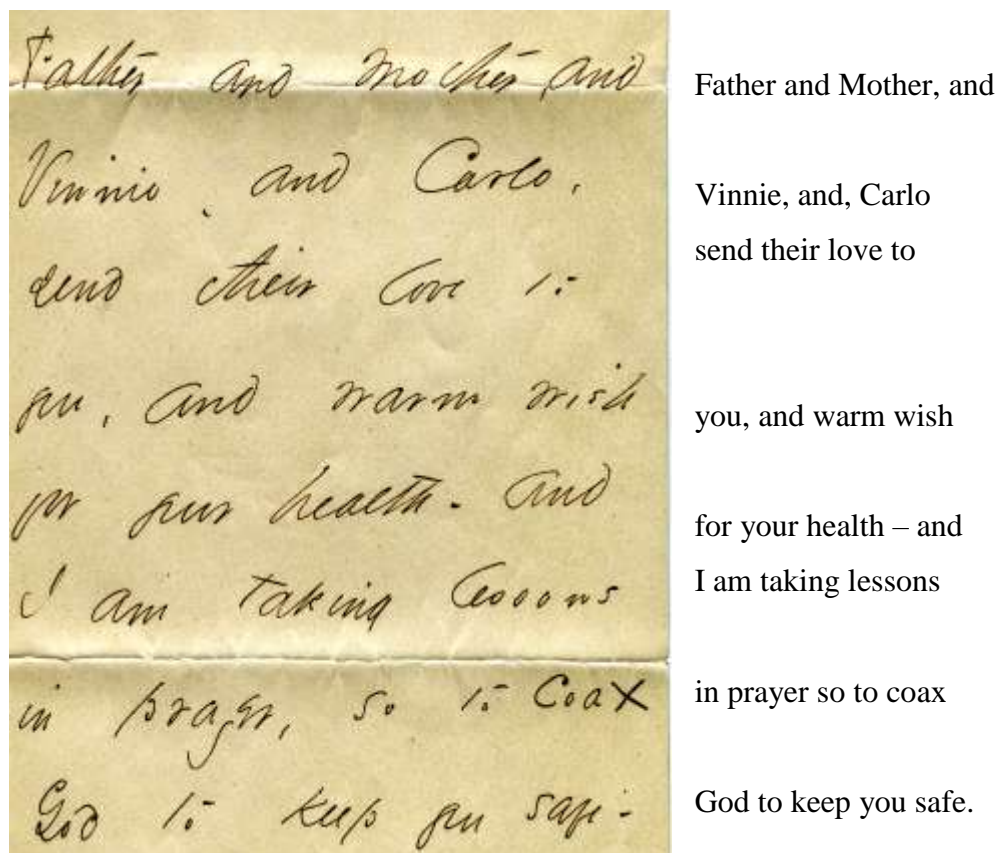 Father and Mother, and
Vinnie, and Carlo,
send their love to
you, and warm wish
for your health - and
I am taking lessons
in prayer, so to coax
God to keep you safe -
Father and Mother, and
Vinnie, and, Carlo
send their love to
you, and warm wish
for your health – and
I am taking lessons
in prayer so to coax
God to keep you safe.